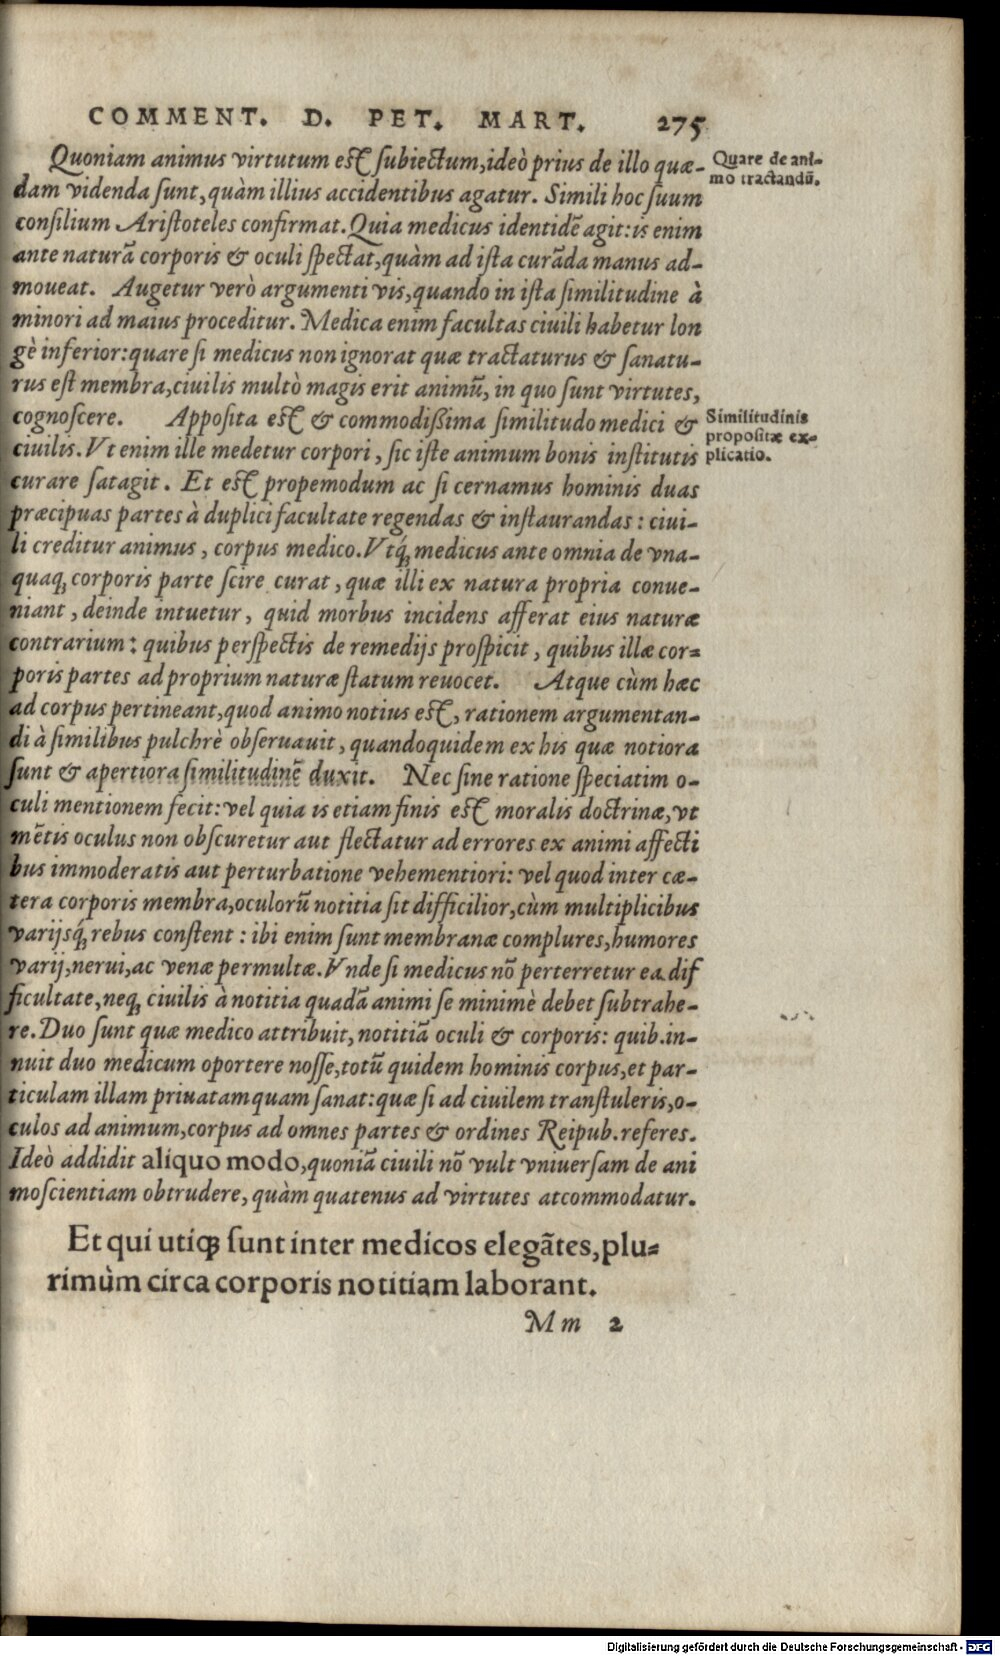 COMMENT. D. PET. MART. 275
Quoniam animus virtutum est subiectum, ideò prius de illo quæ-
dam videnda sunt, quàm illius accidentibus agatur. Simili hoc suum
consilium Aristoteles confirmat. Quia medicus identidẽ agit: is enim
ante naturã corporis & oculi spectat, quàm ad ista curãda manus ad-
moueat. Augetur verò argumenti vis, quando in ista similitudine à
minori ad maius proceditur. Medica enim facultas ciuili habetur lon
gè inferior: quare si medicus non ignorat quæ tractaturus & sanatu-
rus est membra, ciuilis multò magis erit animũ, in quo sunt virtutes,
cognoscere. Apposita est & commodißima similitudo medici &
ciuilis. Vt enim ille medetur corpori, sic iste animum bonis institutis
curare satagit. Et est propemodum ac si cernamus hominis duas
præcipuas partes à duplici facultate regendas & instaurandas: ciui-
li creditur animus, corpus medico. Vtq́; medicus ante omnia de vna-
quaq; corporis parte scire curat, quæ illi ex natura propria conue-
niant, deinde intuetur, quid morbus incidens afferat eius naturæ
contrarium: quibus perspectis de remedijs prospicit, quibus illæ cor-
poris partes ad proprium naturæ statum reuocet. Atque cùm hæc
ad corpus pertineant, quod animo notius est, rationem argumentan-
di à similibus pulchrè obseruauit, quandoquidem ex his quæ notiora
sunt & apertiora similitudinẽ duxit. Nec sine ratione speciatim o-
culi mentionem fecit: vel quia is etiam finis est moralis doctrinæ, vt
mẽtis oculus non obscuretur aut flectatur ad errores ex animi affecti
bus immoderatis aut perturbatione vehementiori: vel quod inter cæ-
tera corporis membra, oculorũ notitia sit difficilior, cùm multiplicibus
varijsq́; rebus constent: ibi enim sunt membranæ complures, humores
varij, nerui, ac venæ permultæ. Vnde si medicus nõ perterretur ea dif
ficultate, neq; ciuilis à notitia quadã animi se minimè debet subtrahe-
re. Duo sunt quæ medico attribuit, notitiã oculi & corporis: quib. in-
nuit duo medicum oportere nosse, totũ quidem hominis corpus, et par-
ticulam illam priuatam quam sanat: quæ si ad ciuilem transtuleris, o-
culos ad animum, corpus ad omnes partes & ordines Reipub. referes.
Ideò addidit aliquo modo, quoniã ciuili nõ vult vniuersam de ani
mo scientiam obtrudere, quàm quatenus ad virtutes atcommodatur.
Et qui utiq; sunt inter medicos elegãtes, plu-
rimùm circa corporis notitiam laborant.
Mm 2
Quare de ani-
mo tractandũ.
Similitudinis
propositæ ex-
plicatio.
Digitalisierung gefördert durch die Deutsche Forschungsgemeinschaft - DFG